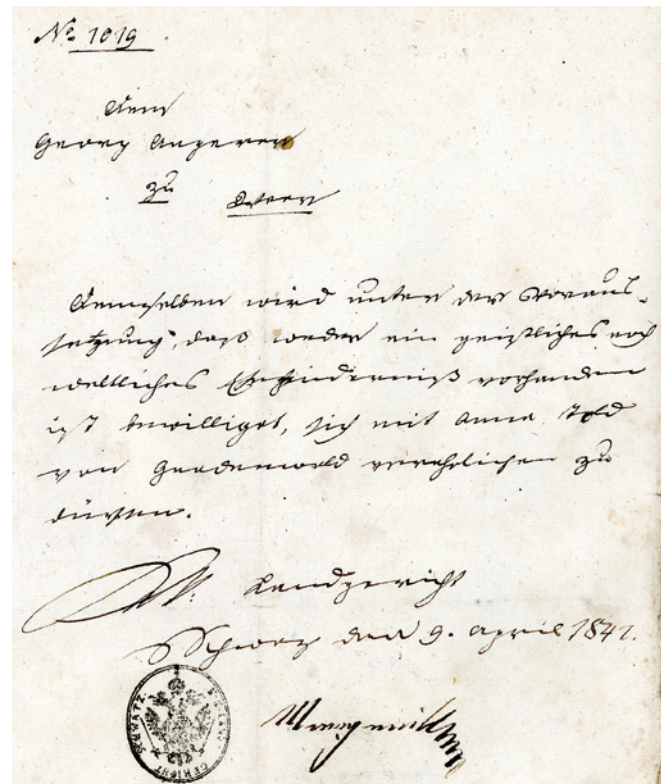 No 1019.
Dem
Georg Angerer
zu Weer
Demselben wird unter der Voraus-
setzung, daß weder ein geistliches noch
weltliches Ehehinderniß vorhanden
ist bewilliget, sich mit Anna Told
von Gnadenwald verehelichen zu
dürfen.
KK. Landgericht
Schwaz den 9. April 1841.